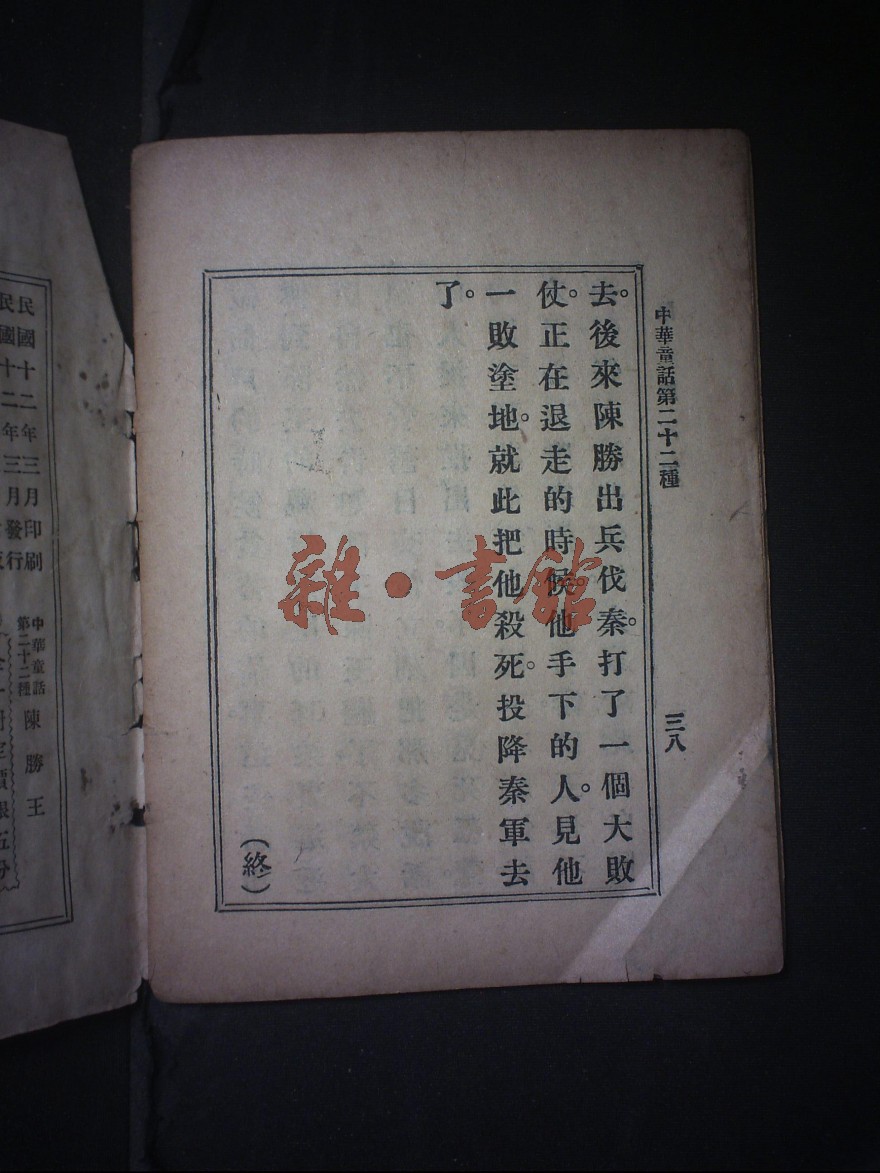 中華童話第二十二種
三八
去。後來陳勝出兵伐秦。打了一個大敗
仗。正在退走的時候。他手下的人。見他
一敗塗地。就此把他殺死。投降秦軍去
了。
(終)
雜·書館
民國十二年三月印刷
民國十二年三月發行
中華童話
第二十二種
陳勝王